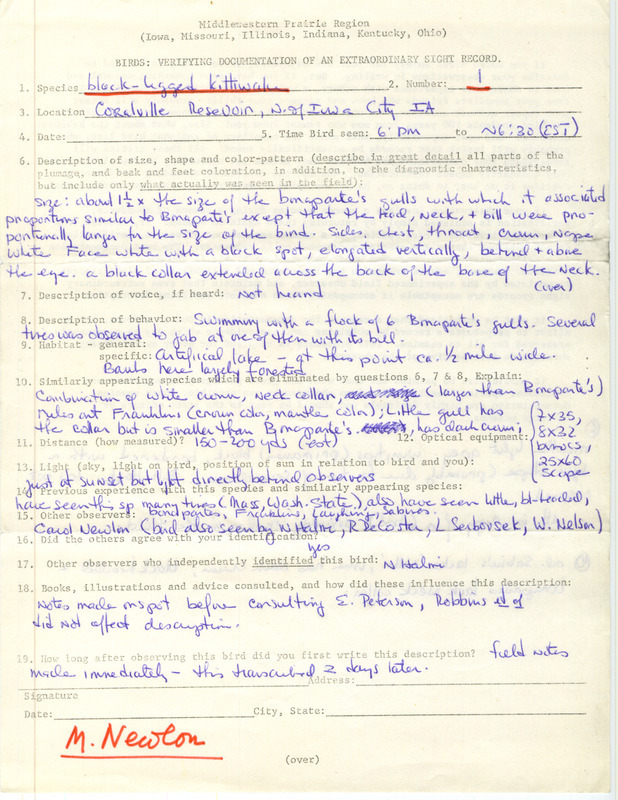 Middlewestern Prairie Region
(Iowa, Missouri, Illinois, Indiana, Kentucky, Ohio)
BIRDS: VERIFYING DOCUMENTATION OF AN EXTRAORDINARY SIGHT RECORD.
1. Species black-legged kittiwake 2. Number: 1
3. Location Coralville Resevoir, N. of Iowa City IA
4. Date: 5. Time Bird seen: 6 PM to ~6:30 (EST)
6. Description of size, shape and color-pattern (describe in great detail all parts of the
plumage, and beak and feet coloration, in addition, to the diagnostic characteristics,
but include only what actually was seen in the field):
Size: about 1½ x the size of the bonaparte's gulls with which it associated
proportions similar to Bonaparte's except that the head, neck, + bill were pro-
portionally larger for the size of the bird. Sides, chest, throat, crown, nape
white Face white with a black spot, elongated vertically, behind + above
the eye. a black collar extended across the back of the base of the neck.
(over)
7. Description of voice, if heard: not heard
8. Description of behavior: Swimming with a flock of 6 Bonaparte's gulls. Several
times was observed to jab at one of them with its bill.
9. Habitat - general:
specific: Artificial lake - at this point ca. ½ mile wide.
Banks here largely forested
10. Similarly appearing species which are eliminated by questions 6, 7 & 8, Explain:
Combination of white crown, neck collar, (larger than Bonaparte's)
rules out Franklins (crown color, mantle color); Little gull has
the collar but is smaller than Bonaparte's. has dark crown;
11. Distance (how measured)? 150-200 yds (est) 12. Optical equipment:
7x35,
8x32
binocs,
25x60
scope
13. Light (sky, light on bird, position of sun in relation to bird and you):
just at sunset but light directly behind observers
14. Previous experience with this species and similarly appearing species:
have seen this sp many times (Mass, Wash. State,) also have seen little, bl-headed,
bonapartes, Franklins, Laughing, Sabines.
15. Other observers:
Carol Newlon (bird also seen by N Halmi, R DeCosta, L Serbovsek, W. Nelson)
16. Did the others agree with your identification?
yes
17. Other observers who independently identified this bird: N Halmi
18. Books, illustrations and advice consulted, and how did these influence this description:
Notes made on spot before consulting E. Peterson, Robbins
did not affect description.
19. How long after observing this bird did you first write this description? field notes
made immediately - this transcribed 2 days later.
Address:
Signature
Date: City, State:
M. Newlon
(over)